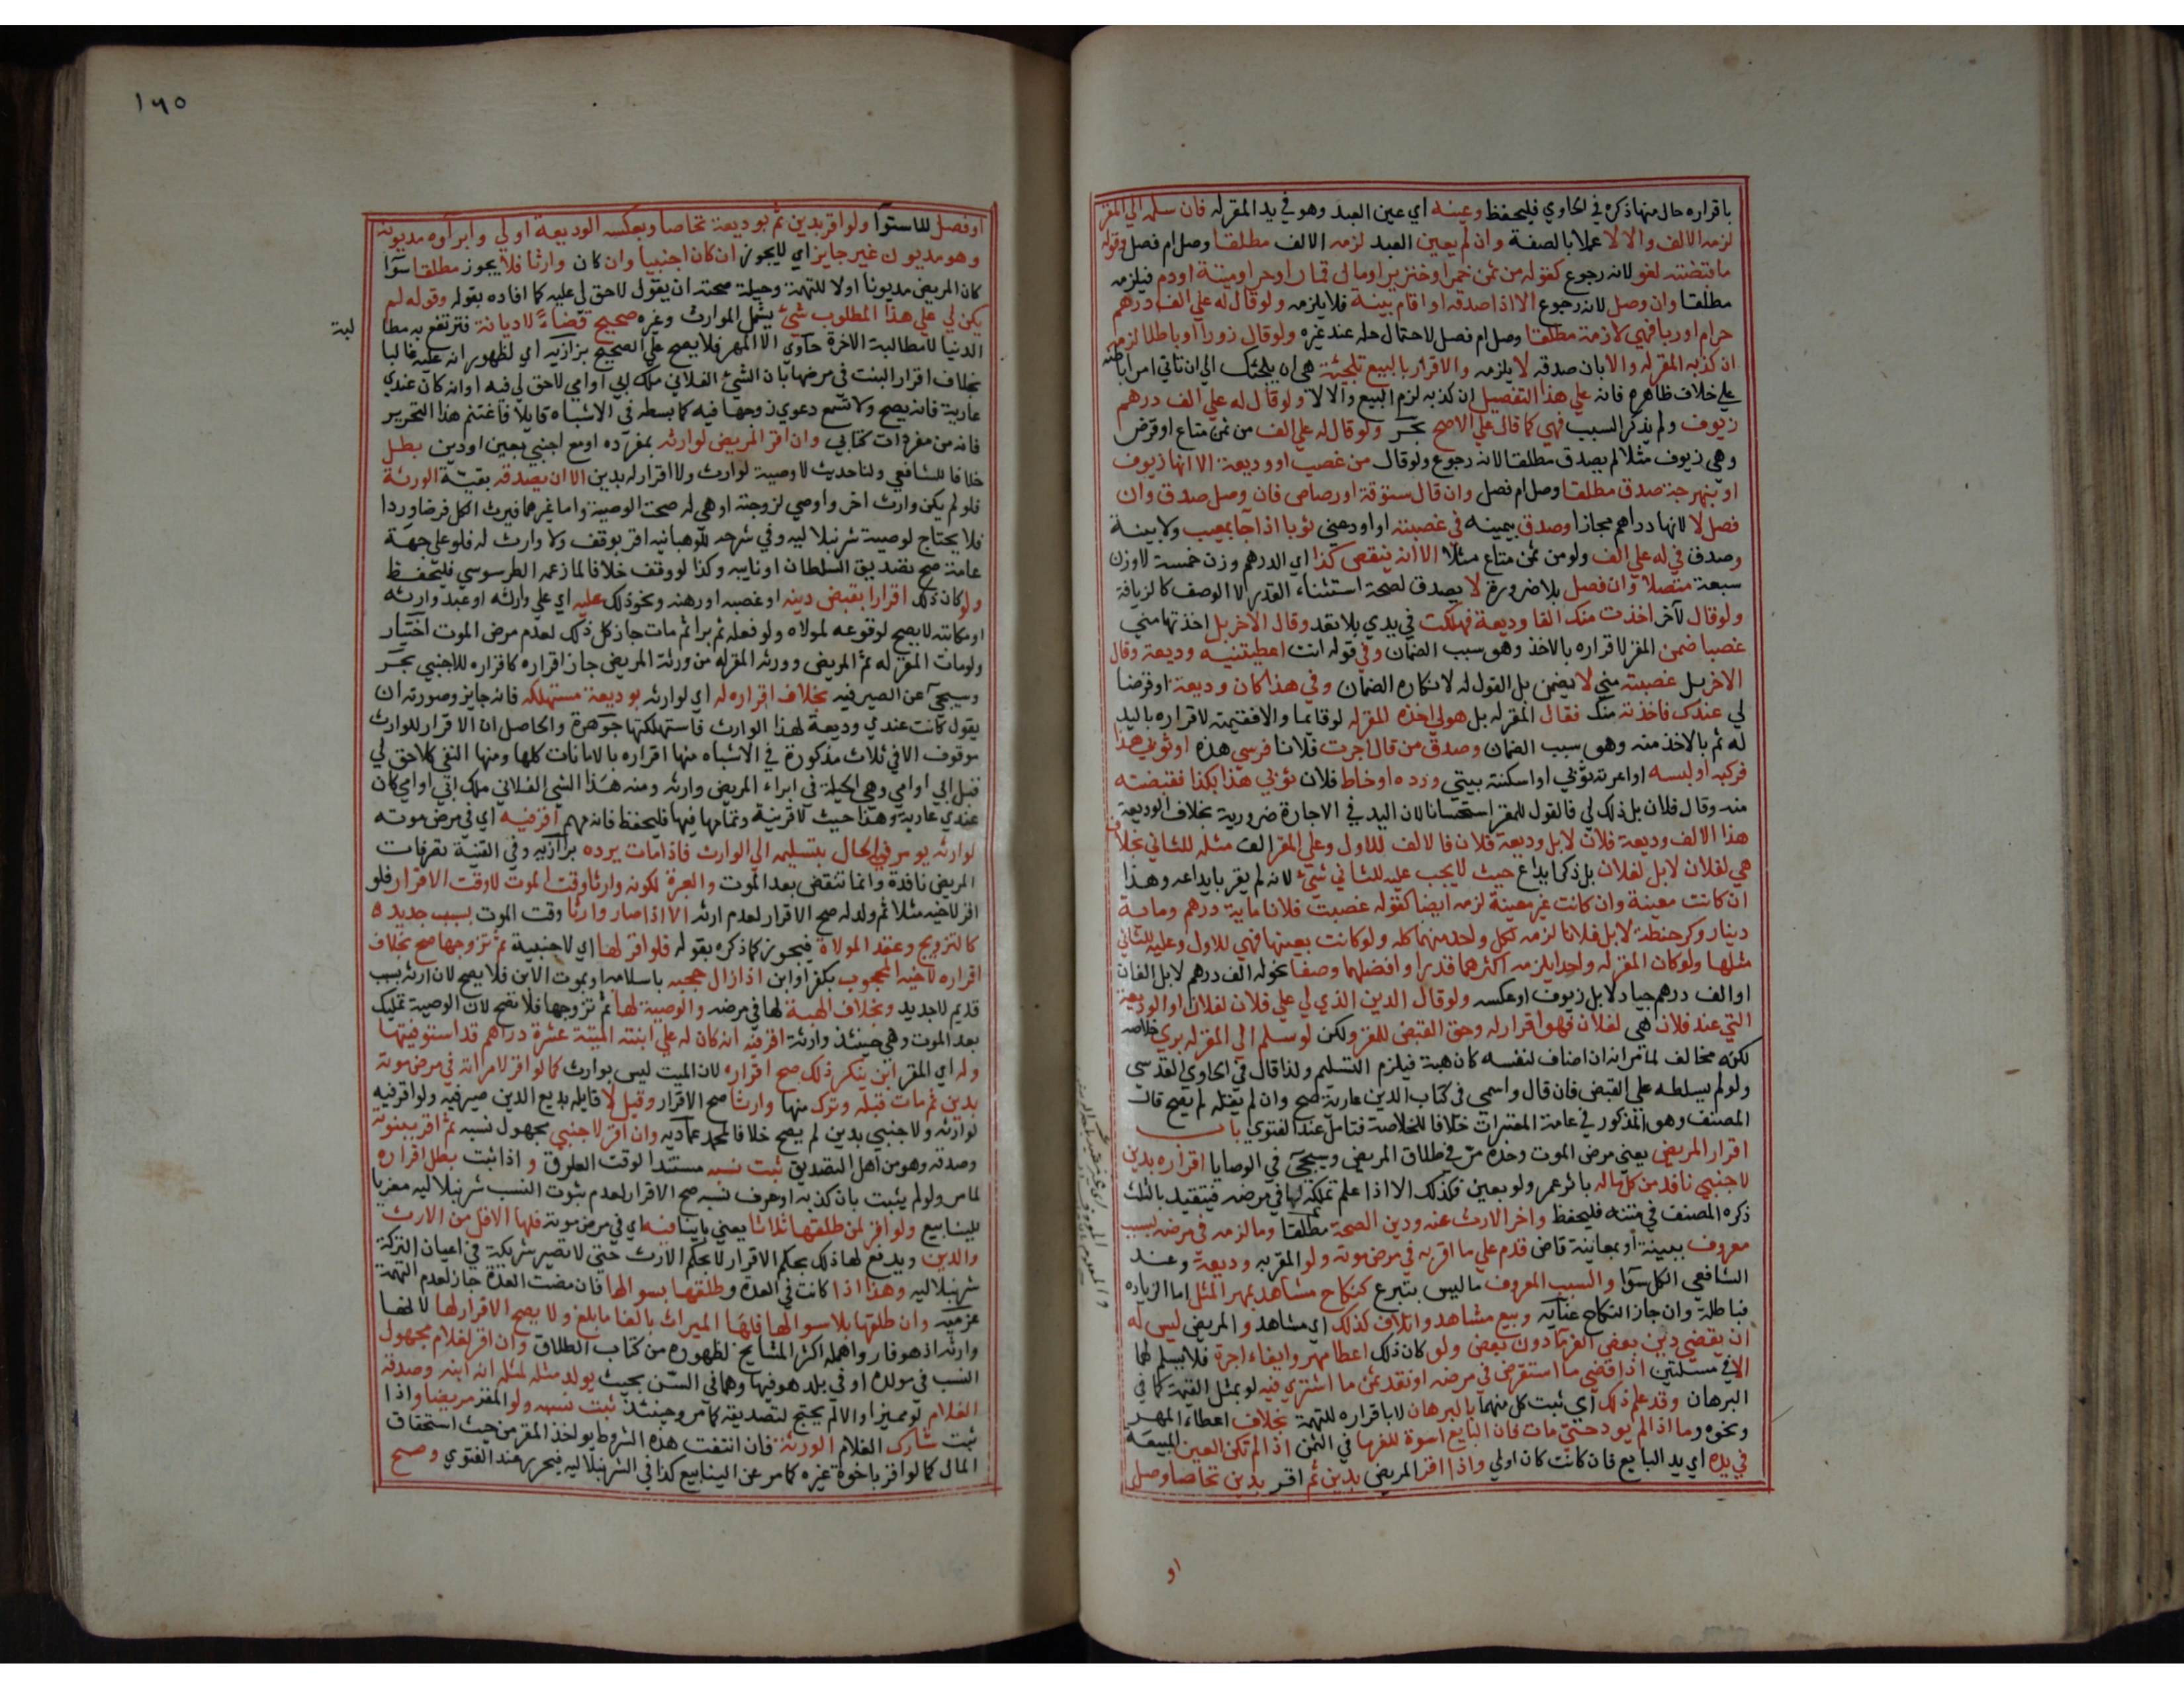 باقراره حال منها ذكره في الحاوي فليحفظ وعينه اي عين العبد وهو في يد المقر له فان سلمه الي المقر
لزمه الالف والا لا عملا بالصفة وان لم يعين العبد لزمه الالف مطلقا وصل ام فصل وقوله
ما قبضته لغو لانه رجوع كقوله من ثمن خمر او خنزير او مال قمار او حر او ميتة او دم فيلزمه
مطلقا وان وصل لانه رجوع الا اذا صدقه او اقام بينة فلا يلزمه ولو قال له علي الف درهم
حرام او ربا فهي لازمة مطلقا وصل ام فصل لاحتمال حله عند غيره ولو قال زورا او باطلا لزمه
ان كذبه المقر له والا بان صدقه لا يلزمه والاقرار بالبيع تلجئة هي ان يلجئك الي ان تاتي امرا باطنه
علي خلاف ظاهره فانه علي هذا التفصيل ان كذبه لزم البيع والا لا ولو قال له علي الف درهم
زيوف ولم يذكر السبب فهي كما قال علي الاصح بحر ولو قال له علي الف من ثمن متاع او قرض
وهي زيوف مثلا لم يصدق مطلقا لانه رجوع ولو قال من غصب او وديعة الا انها زيوف
او بنهرجة صدق مطلقا وصل ام فصل وان قال ستوقة او رصاص فان وصل صدق وان
فصل لا لانها دراهم مجازا وصدق بيمينه في غصبته او اودعني ثوبا اذا جا بمعيب ولا بينة
وصدق في له علي الف ولو من ثمن متاع مثلا الا انه ينقص كذا اي الدرهم وزن خمسة لا وزن
سبعة متصلا وان فصل بلا ضرورة لا يصدق لصحة استثناء القدر لا الوصف كالزيافة
ولو قال لآخر اخذت منك الفا وديعة فهلكت في يدي بلا تعد وقال الاخر بل اخذتها مني
غصبا ضمن المقر لاقراره بالاخذ وهو سبب الضمان وفي قوله انت اعطيتنيه وديعة وقال
الاخر بل غصبته مني لا يضمن بل القول له لانكاره الضمان وفي هذا كان وديعة او قرضا
لي عندك فاخذته منك فقال المقر له بل هو لي اخذه المقر له لو قايما والا فقيمته لاقراره باليد
له ثم بالاخذ منه وهو سبب الضمان وصدق من قال اجرت فلانا فرسي هذه او ثوبي هذا
فركبه او لبسه او اعرته ثوبي او اسكنته بيتي ورده او خاط فلان ثوبي هذا بكذا فقبضته
منه وقال فلان بل ذلك لي فالقول للمقر استحسانا لان اليد في الاجارة ضرورية بخلاف الوديعة
هذا الالف وديعة فلان لا بل وديعة فلان فالالف للاول وعلي المقر الف مثله للثاني بخلاف
هي لفلان لا بل لفلان بل ذكر ايداع حيث لا يجب عليه للثاني شيء لانه لم يقر بايداعه وهذا
ان كانت معينة وان كانت غير معينة لزمه ايضا كقوله غصبت فلانا ماية درهم وماية
دينار وكر حنطة لا بل فلانا لزمه لكل واحد منهما كله ولو كانت بعينها فهي للاول وعليه للثاني
مثلها ولو كان المقر له واحدا يلزمه اكثرهما قدرا وافضلهما وصفا نحو له الف درهم لا بل الفان
او الف درهم جياد لا بل زيوف او عكسه ولو قال الدين الذي لي علي فلان لفلان او الوديعة
التي عند فلان هي لفلان فهو اقرار له وحق القبض للمقر ولكن لو سلم الي المقر له بري خلاصه
لكنه مخالف لما مر انه ان اضاف لنفسه كان هبة فيلزم التسليم ولذا قال في الحاوي القدسي
ولو لم يسلطه علي القبض فان قال واسمي في كتاب الدين عارية صح وان لم يقله لم يصح قال
المصنف وهو المذكور في عامة المعتبرات خلافا للخلاصة فتامل عند الفتوي باب
اقرار المريض يعني مرض الموت وحده مر في طلاق المريض وسيجئ في الوصايا اقراره بدين
لاجنبي نافذ من كل ماله باثر عمر ولو بعين فكذلك الا اذا علم تملكه لها في مرضه فيتقيد بالثلث
ذكره المصنف في متنه فليحفظ واخر الارث عنه ودين الصحة مطلقا وما لزمه في مرضه بسبب
معروف ببينة او بمعاينة قاض قدم علي ما اقر به في مرض موته ولو المقر به وديعة وعند
الشافعي الكل سوا والسبب المعروف ما ليس بتبرع كنكاح مشاهد بمهر المثل اما الزياده
فباطلة وان جاز النكاح عنايه وبيع مشاهد واتلاف كذلك اي مشاهد والمريض ليس له
ان يقضي دين بعض الغرما دون بعض ولو كان ذلك اعطا مهر وايفاء اجرة فلا يسلم لها
الا في مسئلتين اذا قضي ما استقرض في مرضه او نقد ثمن ما اشتري فيه لو بمثل القيمة كما في
البرهان وقد علم ذلك اي ثبت كل منهما بالبرهان لا باقراره للتهمة بخلاف اعطاء المهر
ونحوه وما اذا لم يود حتي مات فان البايع اسوة للغرما في الثمن اذا لم تكن العين المبيعة
في يده اي يد البايع فان كانت كان اولي واذا اقر المريض بدين ثم اقر بدين تحاصا وصل
او
١٦٥
او فصل للاستوا ولو اقر بدين ثم بوديعة تحاصا وبعكسه الوديعة اولي وابراوه مديونه
وهو مديون غير جايز اي لا يجوز ان كان اجنبيا وان كان وارثا فلا يجوز مطلقا سوا
كان المريض مديونا او لا للتهمة وحيلة صحته ان يقول لا حق لي عليه كما افاده بقوله وقوله لم
يكن لي علي هذا المطلوب شيء يشمل الوارث وغيره صحيح قضاءً لا ديانة فترتفع به مطا
لبة
الدنيا لا مطالبة الاخرة حاوي الا المهر فلا يصح علي الصحيح بزازيه اي لظهور انه عليه غالبا
بخلاف اقرار البنت في مرضها بان الشيء الفلاني ملك ابي او امي لا حق لي فيه او انه كان عندي
عارية فانه يصح ولا تسمع دعوي زوجها فيه كما بسطه في الاشباه قايلا فاغتنم هذا التحرير
فانه من مفردات كتابي وان اقر المريض لوارثه بمفرده او مع اجنبي بعين او دين بطل
خلافا للشافعي ولنا حديث لا وصية لوارث ولا اقرار له بدين الا ان يصدقه بقية الورثة
فلو لم يكن وارث اخر واوصي لزوجته او هي له صحت الوصية واما غيرهما فيرث الكل فرضا وردا
فلا يحتاج لوصية شرنبلاليه وفي شرحه للوهبانيه اقر بوقف ولا وارث له فلو علي جهة
عامة صح تصديق السلطان او نايبه وكذا لو وقف خلافا لما زعمه الطرسوسي فليحفظ
ولو كان ذلك اقرارا بقبض دينه او غصبه او رهنه ونحو ذلك عليه اي علي وارثه او عبد وارثه
او مكاتبه لا يصح لوقوعه لمولاه ولو فعله ثم برا ثم مات جاز كل ذلك لعدم مرض الموت اختيار
ولو مات المقر له ثم المريض وورثة المقر له من ورثة المريض جاز اقراره كاقراره للاجنبي بحر
وسيجئ عن الصيرفيه بخلاف اقراره له اي لوارثه بوديعة مستهلكه فانه جايز وصورته ان
يقول كانت عندي وديعة لهذا الوارث فاستهلكتها جوهرة والحاصل ان الاقرار للوارث
موقوف الا في ثلاث مذكورة في الاشباه منها اقراره بالامانات كلها ومنها النفي كلا حق لي
قبل ابي او امي وهي الحيلة في ابراء المريض وارثه ومنه هذا الشي الفلاني ملك ابي او امي كان
عندي عارية وهذا حيث لا قرينة وتمامها فيها فليحفظ فانه مهم اقر فيه اي في مرض موته
لوارثه يومر في الحال بتسليمه الي الوارث فاذا مات يرده بزازيه وفي القنية تصرفات
المريض نافذة وانما تنقض بعد الموت والعبرة لكونه وارثا وقت الموت لا وقت الاقرار فلو
اقر لاخيه مثلا ثم ولد له صح الاقرار لعدم ارثه الا اذا صار وارثا وقت الموت بسبب جديد
كالتزويج وعقد الموالاة فيجوز كما ذكره بقوله فلو اقر لها اي لاجنبية ثم تزوجها صح بخلاف
اقراره لاخيه المحجوب بكفر او ابن اذا زال حجبه باسلامه او بموت الابن فلا يصح لان ارثه بسبب
قديم لا جديد وبخلاف الهبة لها في مرضه والوصية لها ثم تزوجها فلا تصح لان الوصية تمليك
بعد الموت وهي حينئذ وارثة اقر فيه انه كان له علي ابنته الميتة عشرة دراهم قد استوفيتها
وله اي المقر ابن ينكر ذلك صح اقراره لان الميت ليس بوارث كما لو اقر لامراته في مرض موته
بدين ثم مات قبله وترك منها وارثا صح الاقرار وقيل لا قايله بديع الدين صيرفيه ولو اقر فيه
لوارثه ولاجنبي بدين لم يصح خلافا لمحمد عماديه وان اقر لاجنبي مجهول نسبه ثم اقر ببنوته
وصدقه وهو من اهل التصديق ثبت نسبه مستندا لوقت العلوق واذا ثبت بطل اقراره
لما مر ولو لم يثبت بان كذبه او عرف نسبه صح الاقرار لعدم ثبوت النسب شرنبلاليه معزيا
للينابيع ولو اقر لمن طلقها ثلاثا يعني باينا فيه اي في مرض موته فلها الاقل من الارث
والدين ويدفع لها ذلك بحكم الاقرار لا بحكم الارث حتي لا تصير شريكة في اعيان التركة
شرنبلاليه وهذا اذا كانت في العدة وطلقها بسوالها فان مضت العدة جاز لعدم التهمة
عزميه وان طلقها بلا سوالها فلها الميراث بالغا ما بلغ ولا يصح الاقرار لها لانها
وارثه اذ هو فار واهمله اكثر المشايخ لظهوره من كتاب الطلاق وان اقر لغلام مجهول
النسب في مولده او في بلد هو فيها وهما في السن بحيث يولد مثله لمثله انه ابنه وصدقه
الغلام لو مميزا والا لم يحتج لتصديقه كما مر وحينئذ ثبت نسبه ولو المقر مريضا واذا
ثبت شارك الغلام الورثة فان انتفت هذه الشروط يواخذ المقر من حيث استحقاق
المال كما لو اقر باخوة غيره كما مر عن الينابيع كذا في الشرنبلاليه فيحرر عند الفتوي وصح